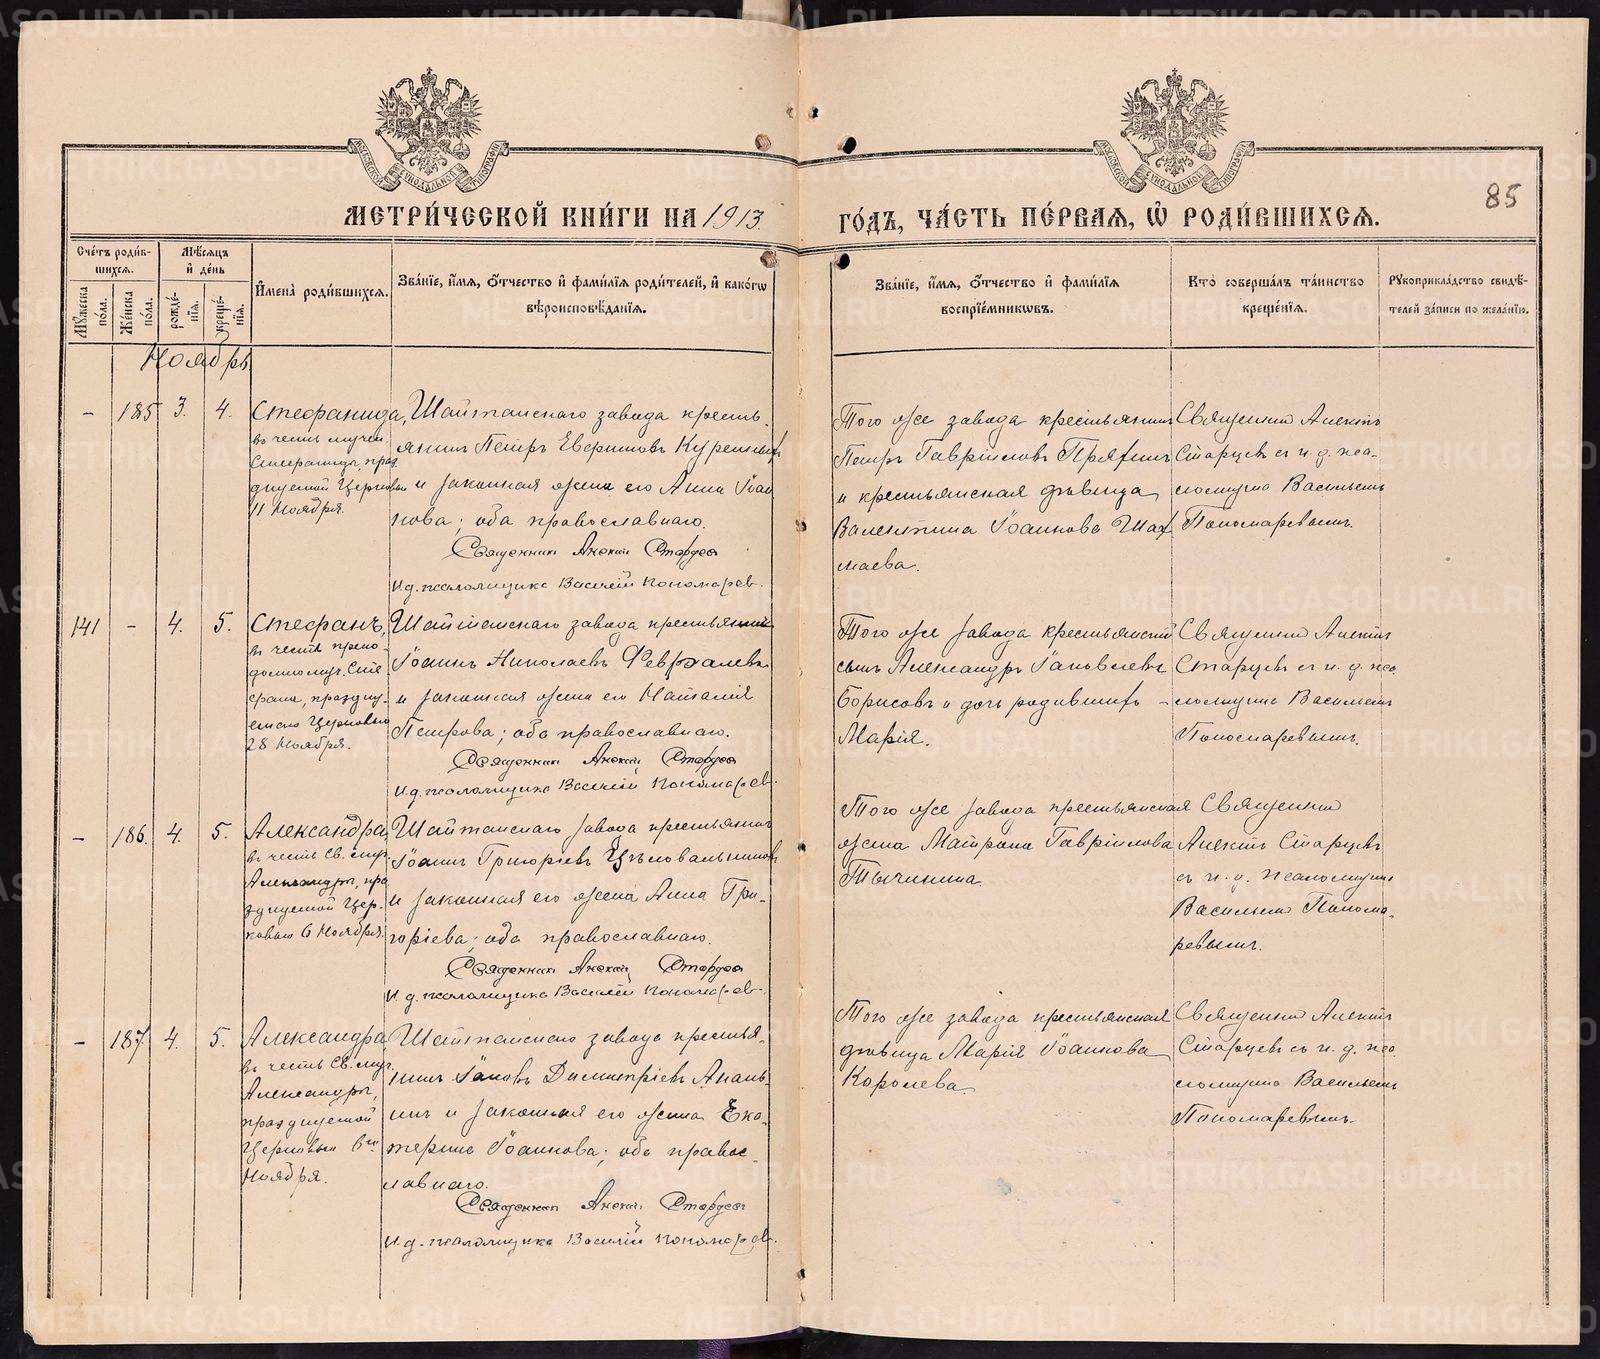 МЕТРИ́ЧЕСКОЙ КНИ́ГИ НА 1913.
ГО́ДЪ, ЧА́СТЬ ПЕ́РВАЯ, Ѡ҆ РОДИ́ВШИХСЯ.
85
Сче́тъ роди́в-
шихся.
Мѣ́сяцъ
и҆ де́нь
Му́жеска
по́ла.
Же́нска
по́ла.
рожде́-
нїя.
креще́-
нїя.
И҆мена̀ роди́вшихся.
Зва́нїе, и҆́мя, ѻ҆́тчество и҆ фами́лїя роди́телей, и҆ како́гѡ
вѣроисповѣ́данїя.
Зва́нїе, и҆́мя, ѻ҆́тчество и҆ фами́лїя
воспрїе́мникѡвъ.
Кто̀ соверша́лъ та́инство
креще́нїя.
Рукоприкла́дство свидѣ́-
телей за́писи по жела́нїю.
Ноябрь
- 185 3. 4.
Стефанида,
въ честь мучен.
Стефаниды, праз
днуемой Церковью
11 Ноября.
Шайтанскаго завода кресть
янинъ Петръ Евфимовъ
и законная жена его Анна Іоан
нова; оба православнаго.
Священникъ Алексій Старцев
И. д. псаломщика Василій Пономарев.
Того же завода крестьянинъ
Петръ Гавріиловъ Пряхинъ
и крестьянская дѣвица
Валентина Іоаннова Шах
маева.
Священникъ Алексѣй
Старцевъ съ и. д. пса-
ломщика Васильемъ
Пономаревымъ.
141 - 4. 5.
Стефанъ,
въ честь препо-
добномуч. Сте
фана, праздну-
емаго Церковью
28 Ноября.
Шайтанскаго завода крестьянинъ
Іоаннъ Николаевъ Февралевъ
и законная жена его Наталія
Петрова; оба православнаго.
Священникъ Алексій Старцев
И. д. псаломщика Василій Пономарев.
Того же завода крестьянскій
сынъ Александръ Іаковлевъ
Борисовъ и дочь родившихъ -
Марія.
Священникъ Алексѣй
Старцевъ съ и. д. пса
ломщика Васильемъ
Пономаревымъ.
- 186. 4. 5.
Александра,
въ честь Св. муч.
Александры, пра
зднуемой Цер-
ковью 6 Ноября.
Шайтанскаго завода крестьянинъ
Іоаннъ Григоріевъ Цѣловальниковъ
и законная его жена Анна Гри-
горіева; оба православнаго.
Священникъ Алексій Старцев
И. д. псаломщика Василій Пономарев.
Того же завода крестьянская
жена Матрона Гавріилова
Тычинина.
Священникъ
Алексѣй Старцевъ
съ и. д. псаломщика
Васильемъ Понома-
ревымъ.
- 187. 4. 5.
Александра
въ честь Св. муч.
Александры,
празднуемой
Церковью 6го
Ноября.
Шайтанскаго завода крестья-
нинъ Іаковъ Димитріевъ Анань-
инъ и законная его жена Ека-
терина Іоаннова; оба правос-
лавнаго.
Священникъ Алексій Старцев
И. д. псаломщика Василій Пономарев.
Того же завода крестьянская
дѣвица Марія Іоаннова
Королева.
Священникъ Алексѣй
Старцевъ съ и. д. пса
ломщика Васильемъ
Пономаревымъ.
METRIKI.GASO-URAL.RU